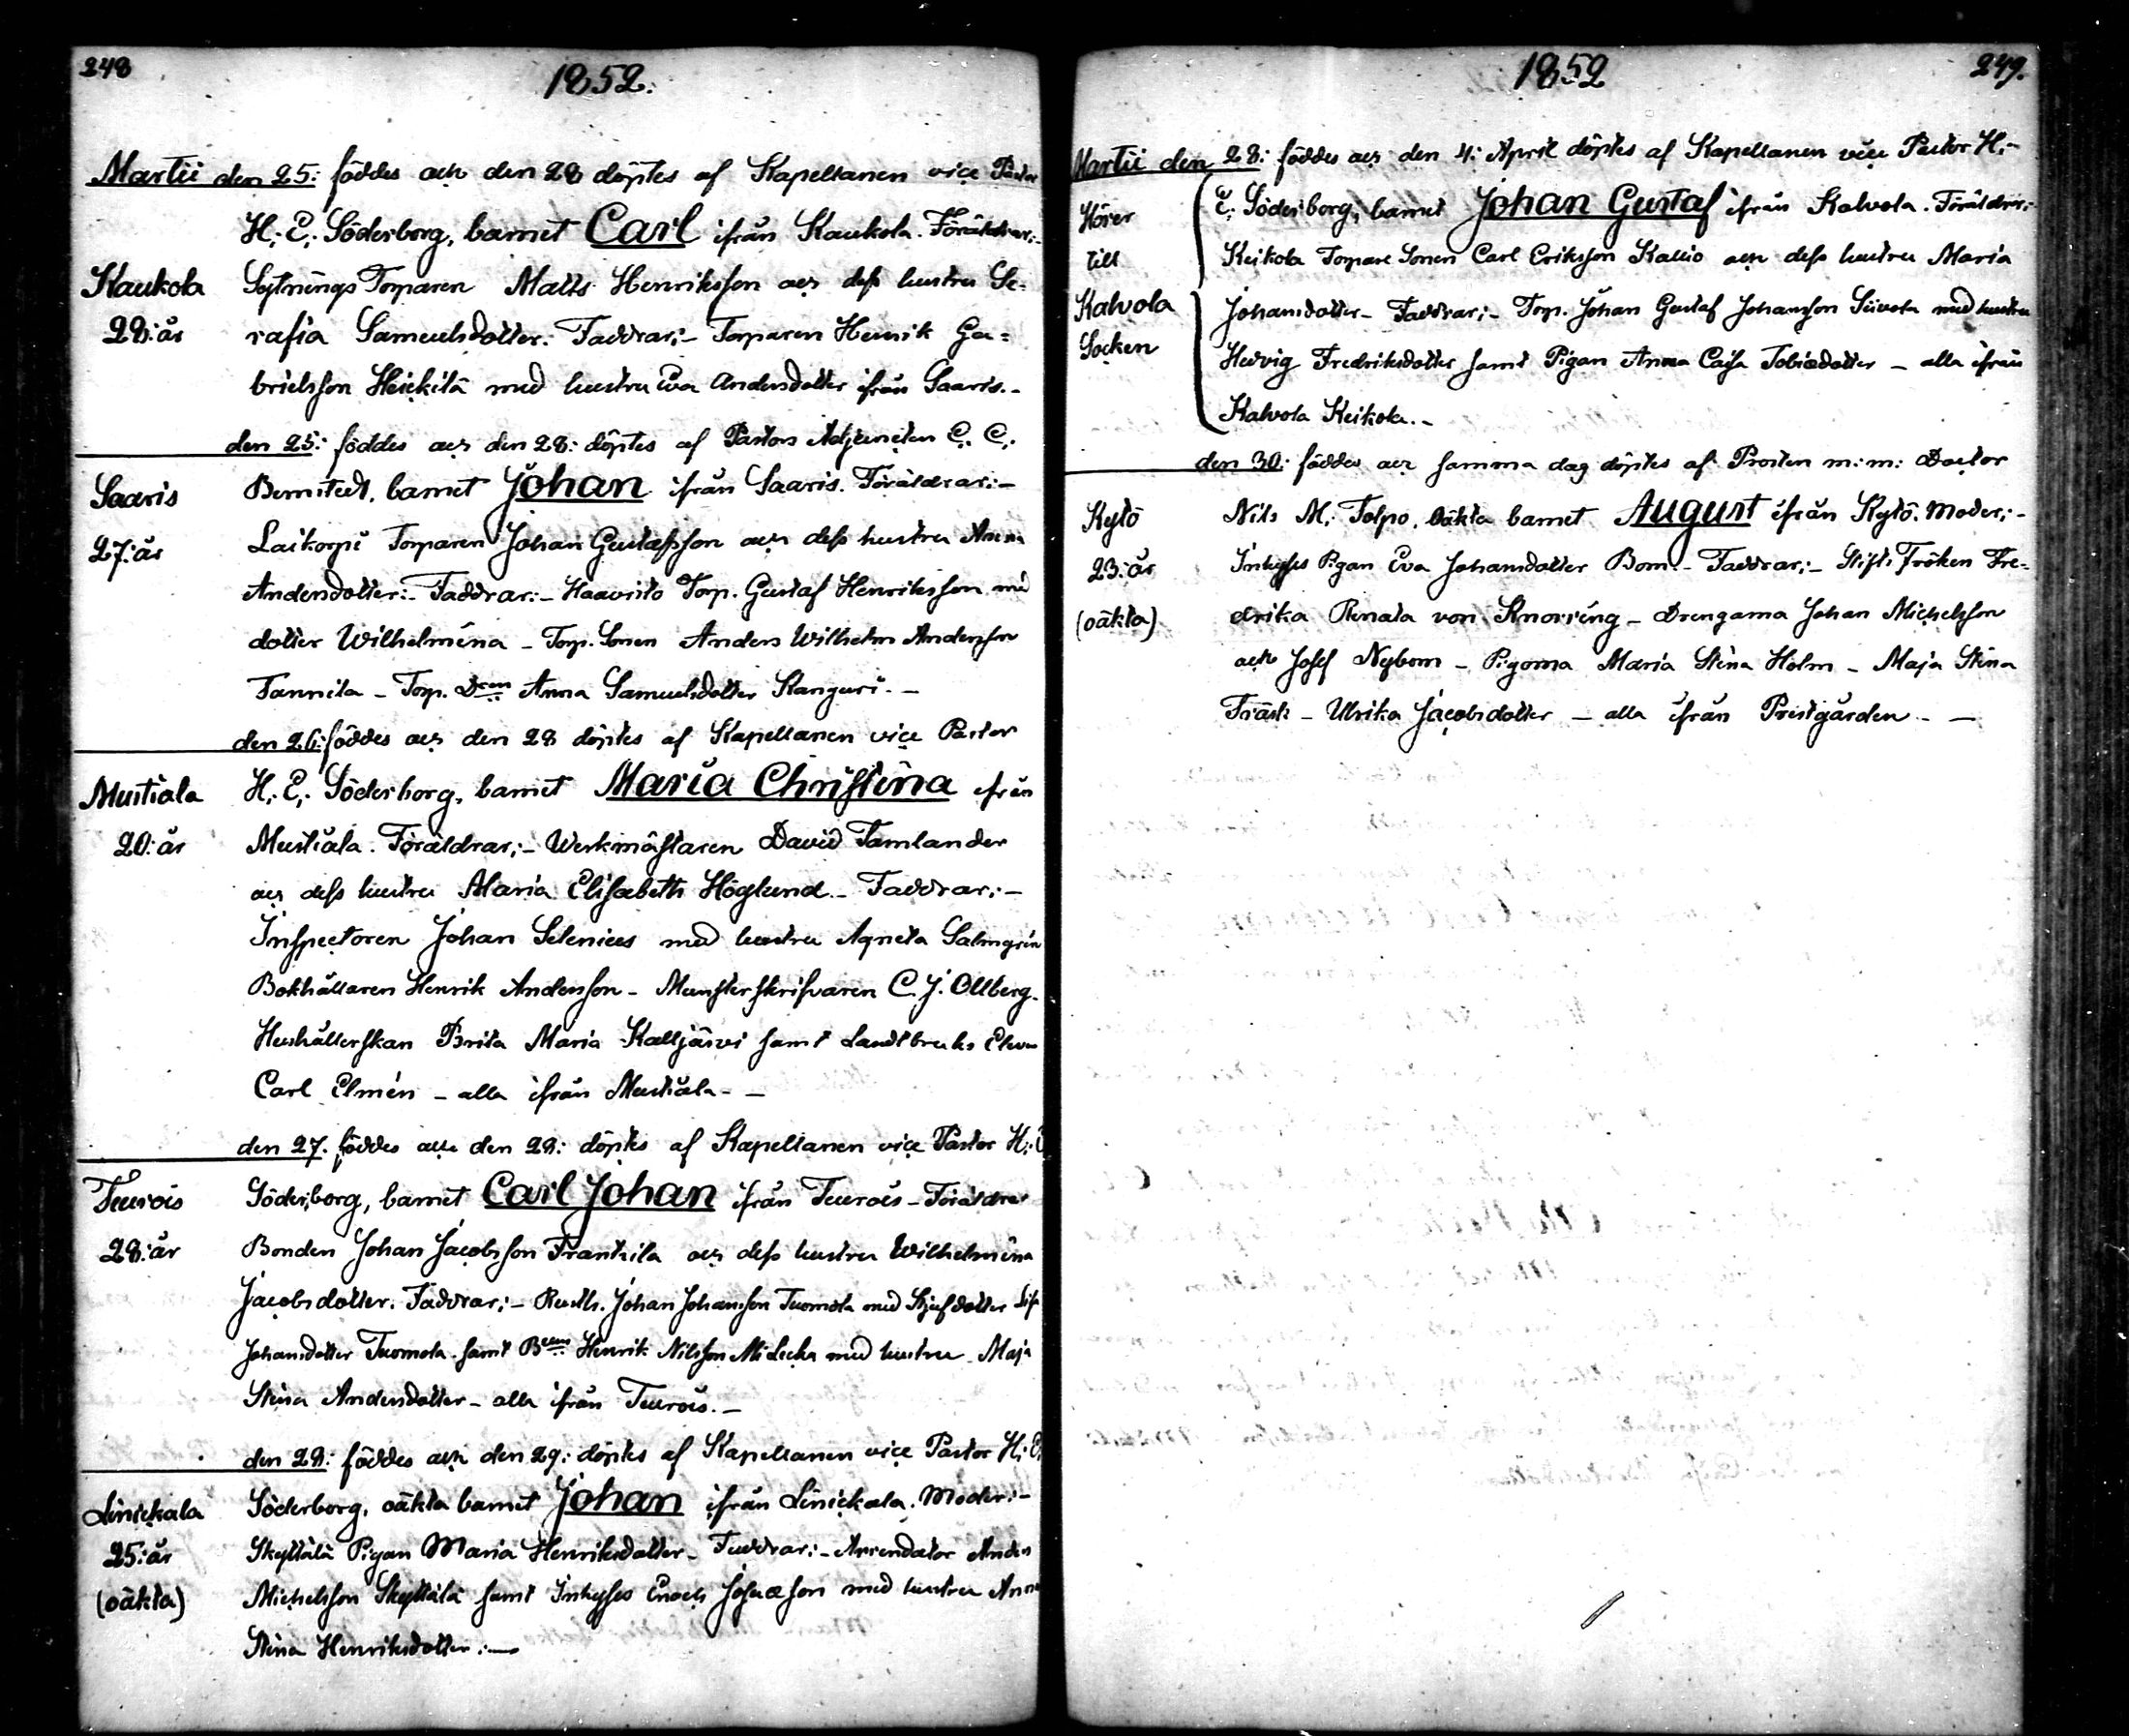 248
1852.
Martii den 25: föddes och den 28 döptes af Kapellanen vice Pastor
H. E. Söderborg, barnet Carl ifrån Kaukola. Föräldrar:-
Kaukola
28: år
Sytnings Torparen Matts Henriksson och dess hustru Se-
rafia Samuelsdotter. Faddrar:- Torparen Henrik Ga-
brielsson Heickilä med hustru Eva Andersdotter ifrån Saaris.-
den 25: föddes och den 28: döptes af Pastors Adjuncten C. C.
Saaris
27: år
Bernstedt, barnet Johan ifrån Saaris. Föräldrar:-
Laikorpi Torparen Johan Gustafsson och dess hustru Anna
Andersdotter:- Faddrar:- Haavisto Torp. Gustaf Henriksson med
dotter Wilhelmina - Torp. Sonen Anders Wilhelm Andersson
Tannila - Torp. Dren Anna Samuelsdotter Kanguri.-
den 26: föddes och den 28 döptes af Kapellanen vice Pastor
Mustiala
20: år
H. E. Söderborg, barnet Maria Christina ifrån
Mustiala. Föräldrar:- Werkmästaren David Tamlander
och dess hustru Maria Elisabeth Höglund - Faddrar:-
Inspectoren Johan Selenius med hustru Agneta Salmgrén
Bokhållaren Henrik Andersson - Munsterskrifvaren C. J. Ollberg -
Hushållerskan Brita Maria Kalljärvi samt Landtbruks Eleven
Carl Elmén - alla ifrån Mustiala - -
den 27. föddes och den 28: döptes af Kapellanen vice Pastor H. E
Teurois
28: år
Söderborg, barnet Carl Johan ifrån Teurois - Föräldrar
Bonden Johan Jacobsson Frantsila och dess hustru Wilhelmina
Jacobsdotter. Faddrar:- Rusth. Johan Johansson Tuomola med Stjufdotter Lisa
Johansdotter Tuomola samt Bden Henrik Nilsson med hustru Maja
Stina Andersdotter - alla ifrån Teurois.-
den 28: föddes och den 29: döptes af Kapellanen vice Pastor H. E.
Linickala
25: år
(oäkta)
Söderborg, oäkta barnet Johan ifrån Linickala. Moder:-
Skyttälä Pigan Maria Henriksdotter - Faddrar:- Arrendator Anders
Michelsson Skyttälä samt Inhyses Enoch Josuæson med hustru Anna
Stina Henriksdotter:-
1852
249.
Martii den 28: föddes och den 4: April döptes af Kapellanen vice Pastor H.-
Hörer
till
Kalvola
Socken
E. Söderborg, barnet Johan Gustaf ifrån Kalvola. Föräldrar:-
Keikola Torpare Sonen Carl Eriksson Kallio och dess hustru Maria
Johansdotter - Faddrar:- Torp. Johan Gustaf Johansson Siivola med hustru
Hedvig Fredriksdotter samt Pigan Anna Caisa Tobiædotter - alla ifrån
Kalvola Keikola.-
den 30: föddes och samma dag döptes af Prosten m: m: Doctor
Kytö
23: år
(oäkta)
Nils M. Tolpo, oäkta barnet August ifrån Kytö. Moder:-
Inhyses Pigan Eva Johansdotter Bom - Faddrar:- Stifts Fröken Fre-
drika Renata von Knorring - Drengarna Johan Michelsson
och Josef Nybom - Pigorna Maria Stina Holm - Maja Stina
Träsk - Ulrika Jacobsdotter - alla ifrån Prestgården - -